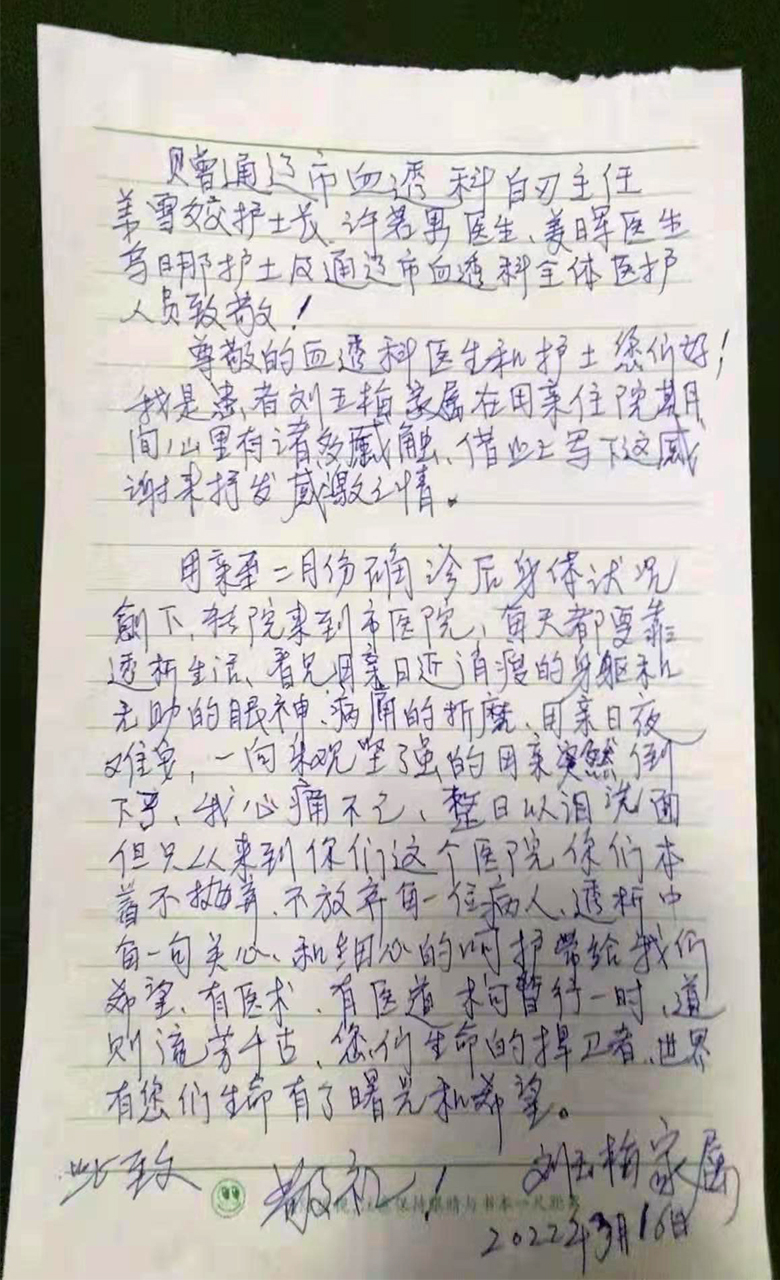 赠通辽市血透科白刃主任
姜雪姣护士长、许若男医生、姜日军医生
乌日那护士及通辽市血透科全体医护
人员致敬！
尊敬的血透科医生和护士您们好！
我是患者刘玉梅家属在母亲住院期
间心里有诸多感触、借此上写下这感
谢来抒发感激之情。
母亲至二月份确诊后身体状况
下,转院来到市医院,每天都要靠
透析生活、看见母亲日近消瘦的身躯和
无助的眼神、病痛的折磨、母亲日夜
难安,一向乐观坚强的母亲突然倒
下了、我心痛不已、整日以泪洗面
但只从来到你们这个医院你们本
着不抛弃、不放弃每一位病人、透析中
每一句关心、和细心的呵护带给我们
希望、有医术、有医道 术可暂行一时、道
则流芳千古、您们生命的捍卫者、世界
有您们生命有了曙光和希望。
此致
敬礼！
刘玉梅家属
保持眼睛与书本一尺距离
2022年3月16日